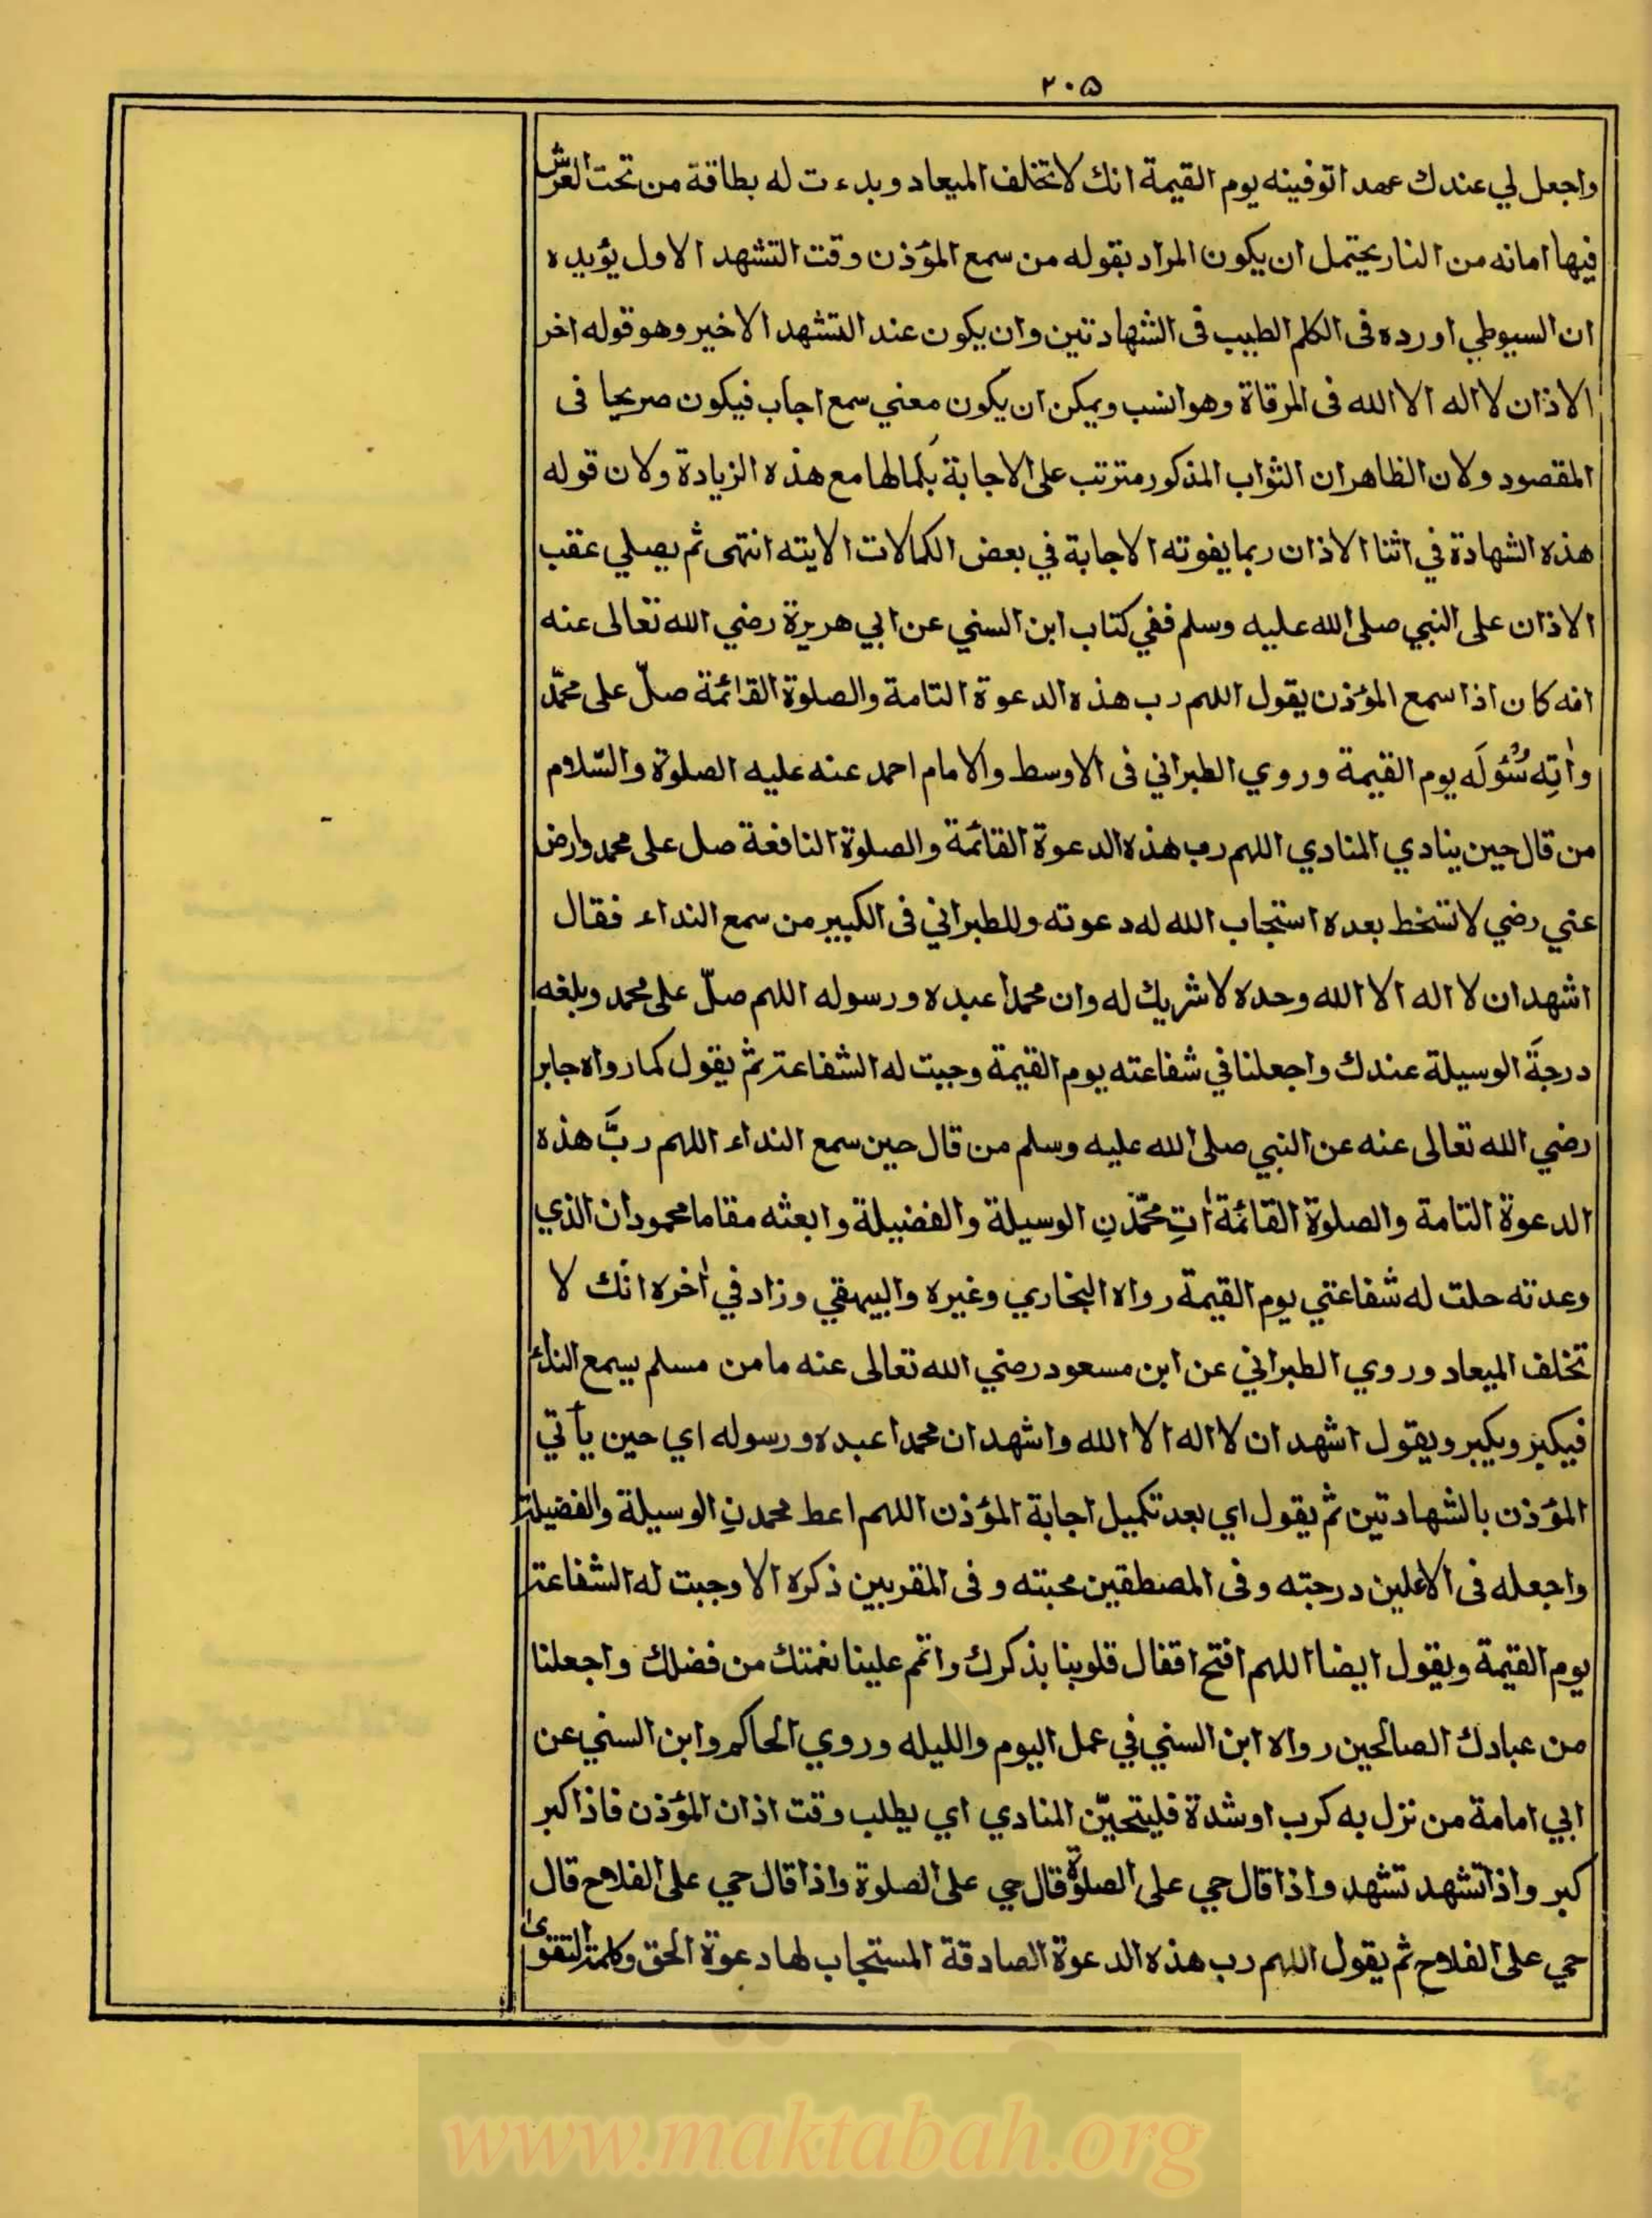 ٢٠٥
واجعل لي عندك عهدا توفينه يوم القيمة انك لا تخلف الميعاد وبدءت له بطاقة من تحت العرش
فيها امانه من النار يحتمل ان يكون المراد بقوله من سمع المؤذن وقت التشهد الاول يؤيده
ان السيوطي اورده فى الكلم الطيب فى الشهادتين وان يكون عند التشهد الاخير وهو قوله اخر
الاذان لا اله الا الله فى المرقاة وهو انسب ويمكن ان يكون معني سمع اجاب فيكون صريحا فى
المقصود ولان الظاهر ان الثواب المذكور مترتب على الاجابة بكمالها مع هذه الزيادة ولان قوله
هذه الشهادة في اثنا الاذان ربما يفوته الاجابة في بعض الكمالات الايته انتهى ثم يصلي عقب
الاذان على النبي صلى الله عليه وسلم ففي كتاب ابن السني عن ابي هريرة رضي الله تعالى عنه
انه كان اذا سمع المؤذن يقول اللهم رب هذه الدعوة التامة والصلوة القائمة صلّ على محمّد
واٰتِه سُئُولَه يوم القيمة وروي الطبراني فى الاوسط والامام احمد عنه عليه الصلوة والسّلام
من قال حين ينادي المنادي اللهم رب هذه الدعوة القائمة والصلوة النافعة صل على محمد وارض
عني رضي لا تسخط بعده استجاب الله له دعوته وللطبراني فى الكبير من سمع النداء فقال
اشهد ان لا اله الا الله وحده لا شريك له وان محمدا عبده ورسوله اللهم صلّ على محمد وبلغه
درجةَ الوسيلة عندك واجعلنا في شفاعته يوم القيمة وجبت له الشفاعة ثم يقول كما رواه جابر
رضي الله تعالى عنه عن النبي صلى الله عليه وسلم من قال حين سمع النداء اللهم ربَّ هذه
الدعوة التامة والصلوة القائمة اٰتِ محمّدَنِ الوسيلة والفضيلة وابعثه مقاما محمودان الذي
وعدته حلت له شفاعتي يوم القيمة رواه البخاري وغيره والبيهقي وزاد في اٰخره انك لا
تخلف الميعاد وروي الطبراني عن ابن مسعود رضي الله تعالى عنه ما من مسلم يسمع النداء
فيكبر ويكبر ويقول اشهد ان لا اله الا الله واشهد ان محمدا عبده ورسوله اي حين ياتي
المؤذن بالشهادتين ثم يقول اي بعد تكميل اجابة المؤذن اللهم اعط محمدنِ الوسيلة والفضيلة
واجعله فى الاعلين درجته وفى المصطفين محبته وفى المقربين ذكره الا وجبت له الشفاعة
يوم القيمة ويقول ايضا اللهم افتح اقفال قلوبنا بذكرك واتم علينا نعمتك من فضلك واجعلنا
من عبادك الصالحين رواه ابن السني في عمل اليوم والليله وروي الحاكم وابن السني عن
ابي امامة من نزل به كرب او شدة فليتحيّن المنادي اي يطلب وقت اذان المؤذن فاذا كبر
كبر واذا تشهد تشهد واذا قال حي على الصلوة قال حي على الصلوة واذا قال حي على الفلاح قال
حي على الفلاح ثم يقول اللهم رب هذه الدعوة الصادقة المستجاب لها دعوة الحق وكلمة التقوى
www.maktabah.org